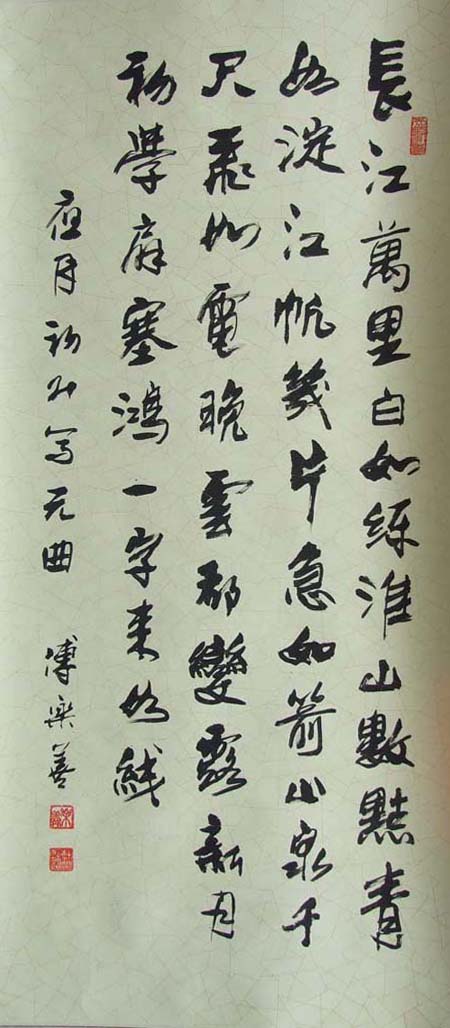 長江萬里白如練淮山數點青
如淀江帆幾片急如箭山泉千
尺飛如電晚雲都變露新月
初學扇塞鴻一字來如綫
月初写元曲
樂善